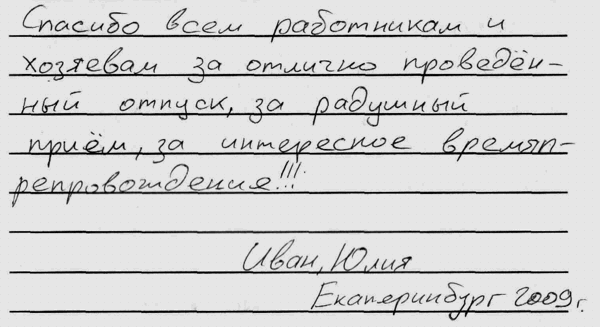 Спасибо всем работникам и
хозяевам за отлично проведён-
ный отпуск, за радушный
приём, за интересное времяп-
репровождения!!!
Иван, Юлия
Екатеринбург 2009г.